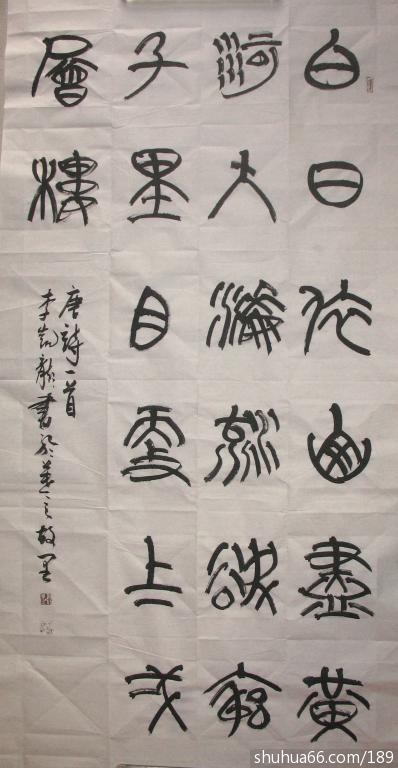 白日依山盡黃
河入海流欲窮
千里目更上弌
層樓
唐詩一首
李凱龍書於之故里
shuhua66.com/189